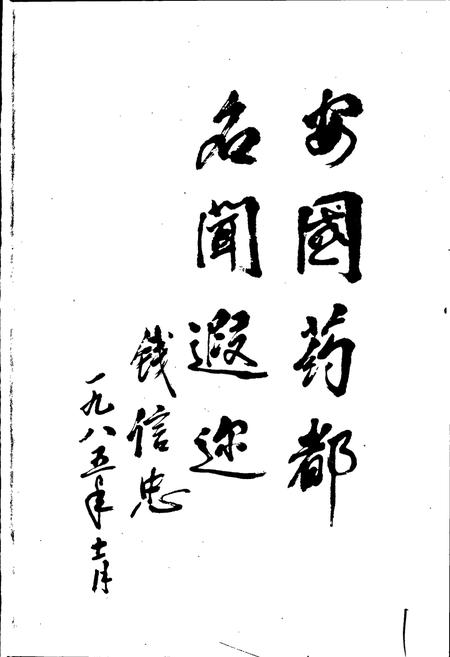 安國药都
名聞遐迩
钱信忠
一九八五年十一月